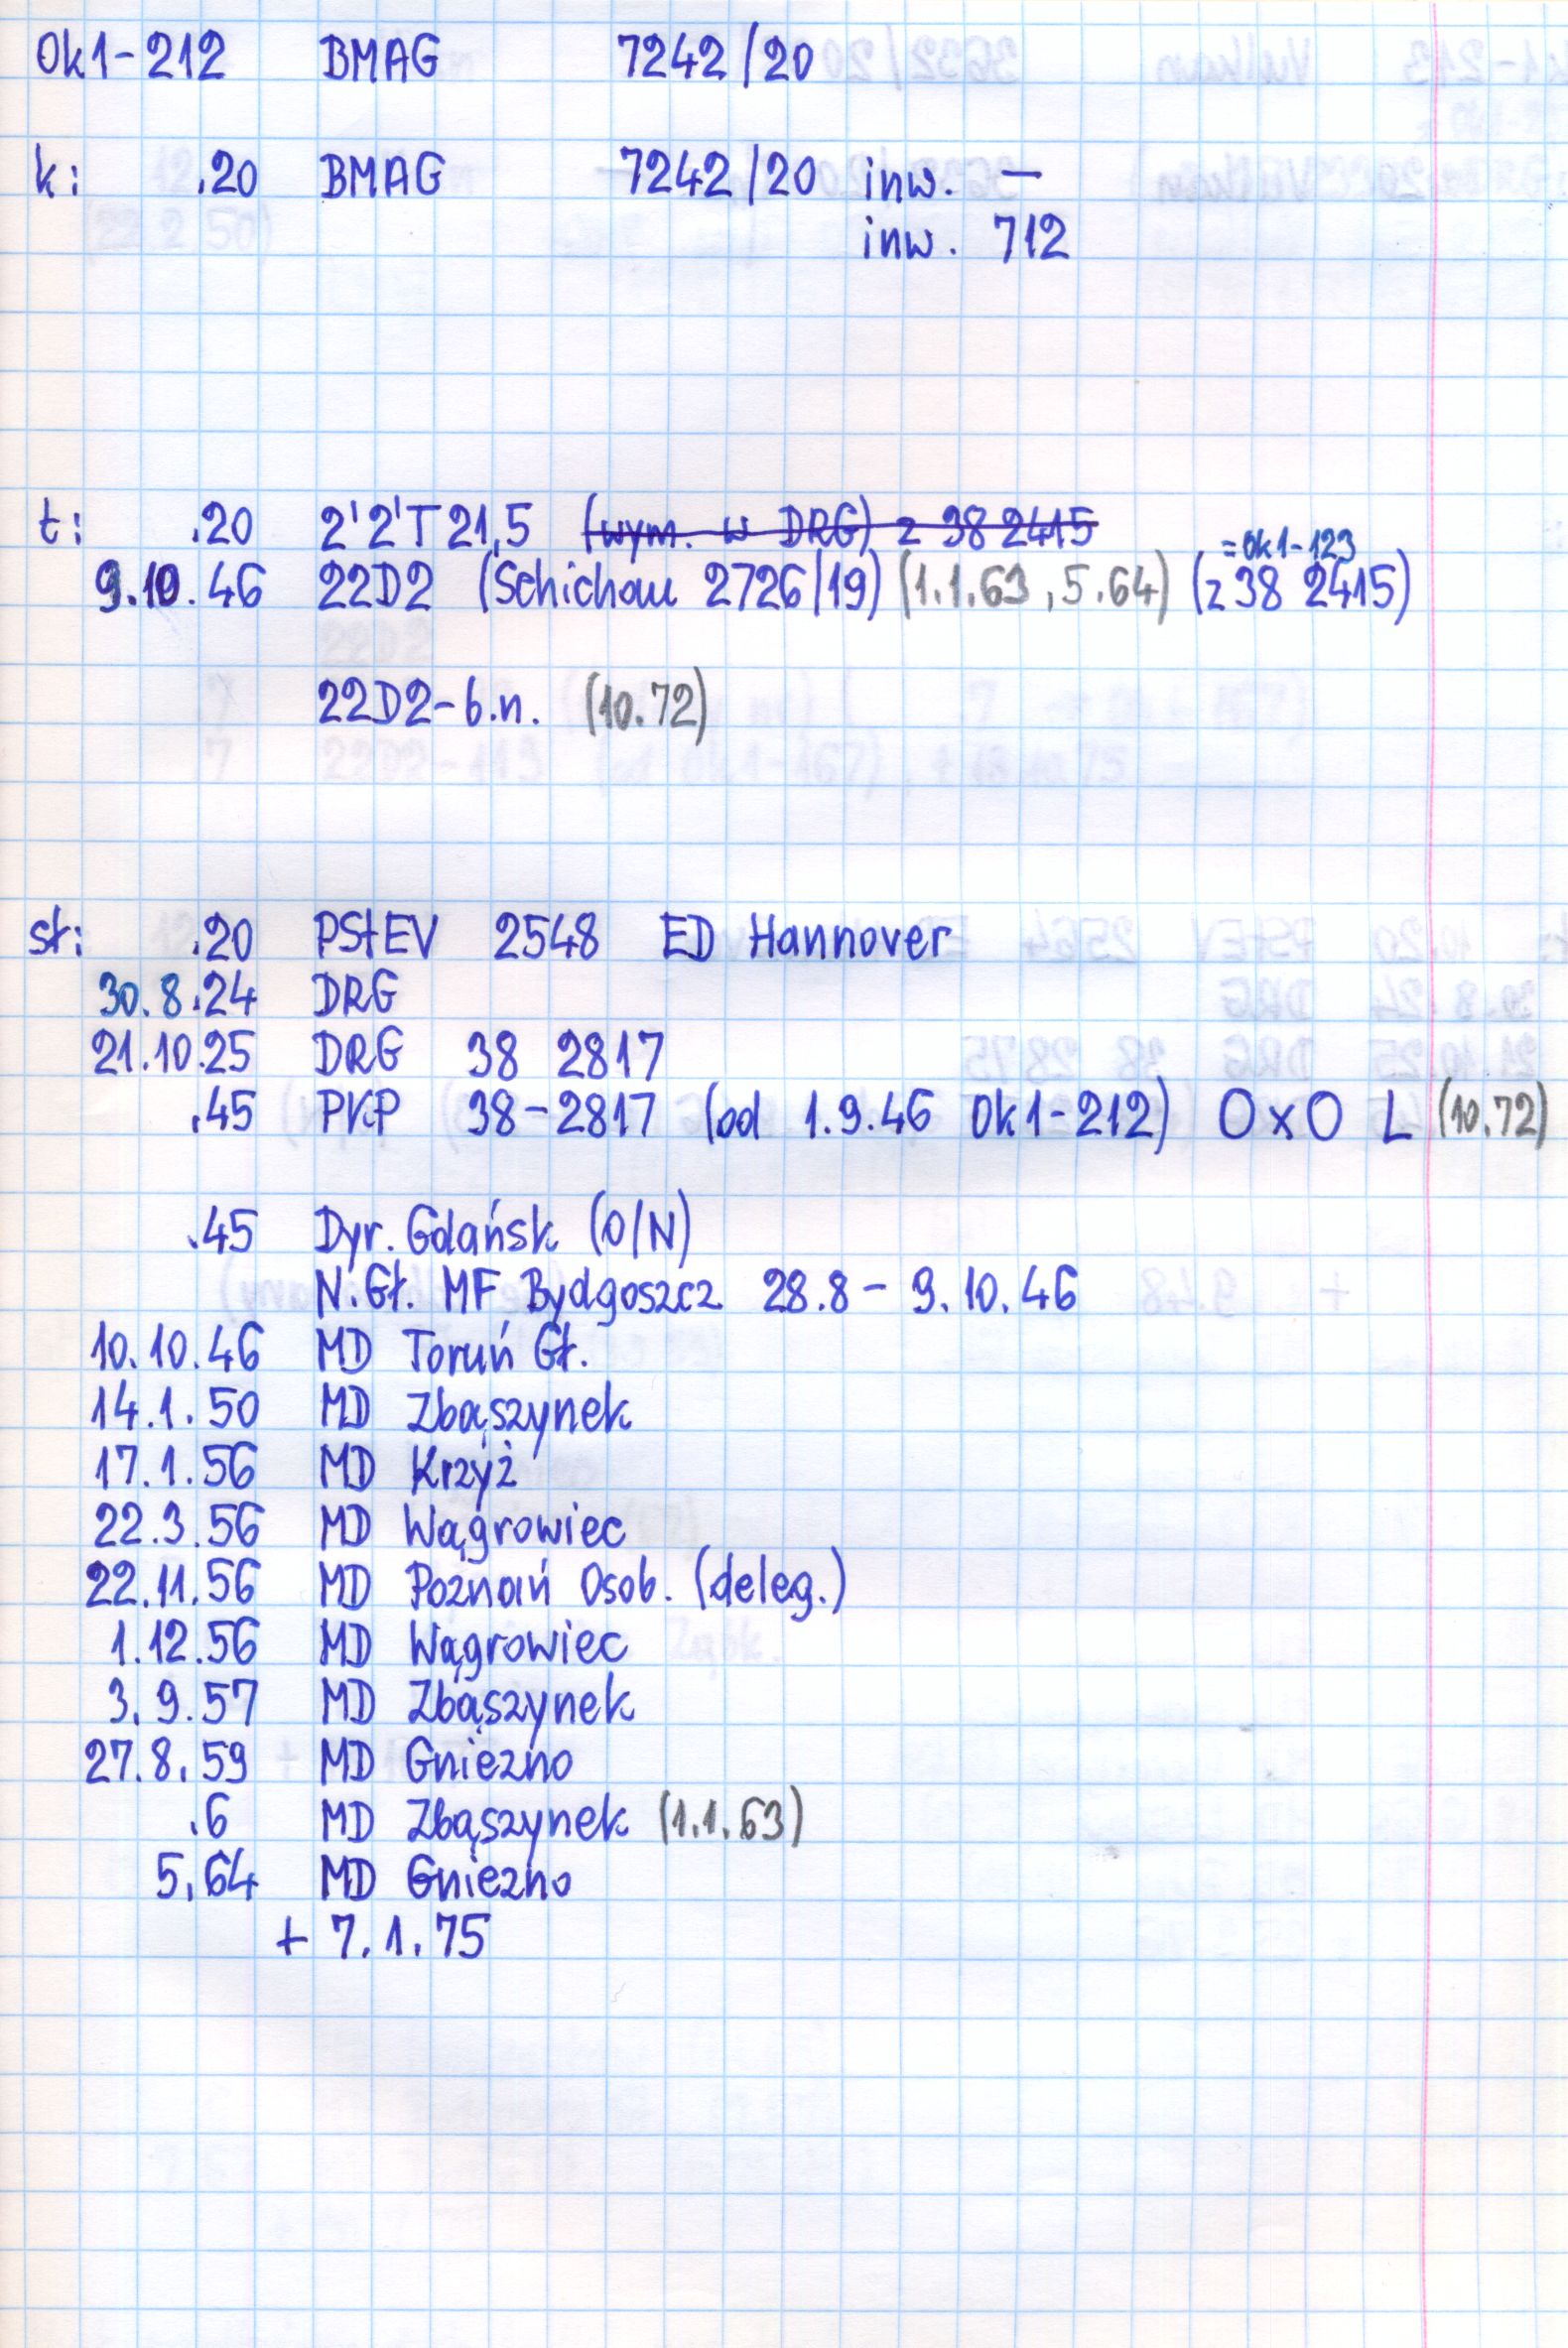 Ok1-212 BMAG 7242/20
k: .20 BMAG 7242/20 inw. —
inw. 712
t: .20 2'2'T21,5 (wym. w DRG) z 38 2415
=Ok1-123
9.10.46 22D2 (Schichau 2726/19) (1.1.63, 5.64) (z 38 2415)
22D2-b.n. (10.72)
st: .20 PStEV 2548 ED Hannover
30.8.24 DRG
21.10.25 DRG 38 2817
.45 PKP 38-2817 (od 1.9.46 Ok1-212) OxO L (10.72)
.45 Dyr. Gdańsk (O/N)
N.Gł. MF Bydgoszcz 28.8 - 9.10.46
10.10.46 MD Toruń Gł.
14.1.50 MD Zbąszynek
17.1.56 MD Krzyż
22.3.56 MD Wągrowiec
22.11.56 MD Poznań Osob. (deleg.)
1.12.56 MD Wągrowiec
3.9.57 MD Zbąszynek
27.8.59 MD Gniezno
.6 MD Zbąszynek (1.1.63)
5.64 MD Gniezno
+ 7.1.75